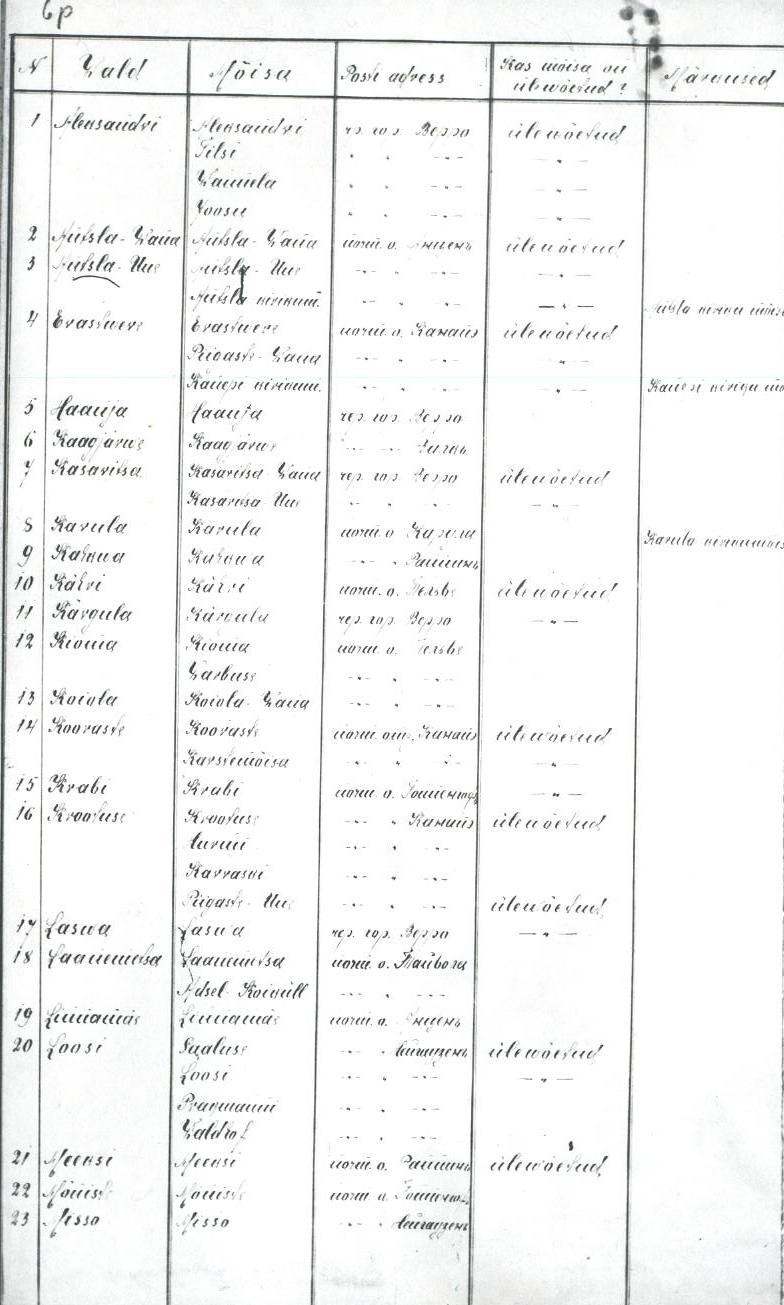 6p
N Wald Mõisa Posti adress Kas mõisa on ülewõetud? Märkused
1 Aleksandri Aleksandri чр. гор. Верро ülewõetud
Tilsi " " — " —
Waimela " " — " —
Joosu " " — " —
2 Antsla-Wana Antsla-Wana почт. о. Анцень ülewõetud
3 Antsla-Uue Antsla-Uue " — " —
Antsla kirikum. " — " — Antsla kiriku mõisa
4 Erastwere Erastwere почт. о. Канапэ ülewõetud
Piigaste-Wana " — " —
Kanepi kirikum. " — " — Kanepi kiriku mõ
5 Haanja Haanja чер. гор. Верро
6 Kaagjärwe Kaagjärwe " Валкъ
7 Kasaritsa Kasaritsa Wana чер. гор. Верро ülewõetud
Kasaritsa Uue " " — " —
8 Karula Karula почт. о. Карула Karula kirikumõis
9 Kahkwa Kahkwa " Раппинъ
10 Kähri Kähri почт. о. Пельве ülewõetud
11 Kärgula Kärgula чер. гор. Верро — " —
12 Kioma Kioma почт. о. Пельве
Warbuse "
13 Koiola Koiola-Wana "
14 Kooraste Kooraste почт. отд. Канапэ ülewõetud
Karstemõisa " — " —
15 Krabi Krabi почт. о. — " —
16 Krootuse Krootuse " Канапэ ülewõetud
"
Karraski "
Piigaste-Uue " ülewõetud
17 Laswa Laswa чер. гор. Верро — " —
18 Laanemetsa Laanemetsa почт. о. Тайвола
Adsel-Koiküll "
19 Linnamäe Linnamäe почт. о. Анцень
20 Loosi Saaluse " Нейгаузенъ ülewõetud
Loosi " — " —
"
Waldhof "
21 Meeksi Meeksi почт. о. Раппинъ ülewõetud
22 Mõniste Mõniste почт. о.
23 Misso Misso " Нейгаузенъ